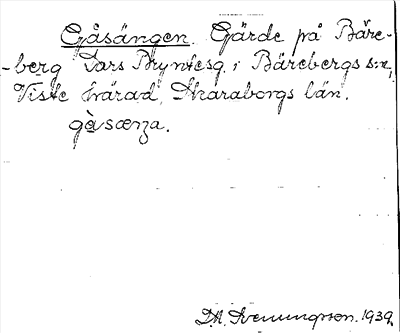 Gåsängen. Gärde på Bäre-
-berg Lars Bryntesg. i Bärebergs s:n,
Viste härad, Skaraborgs län.
gåsæŋa.
Sveningsson. 1939.